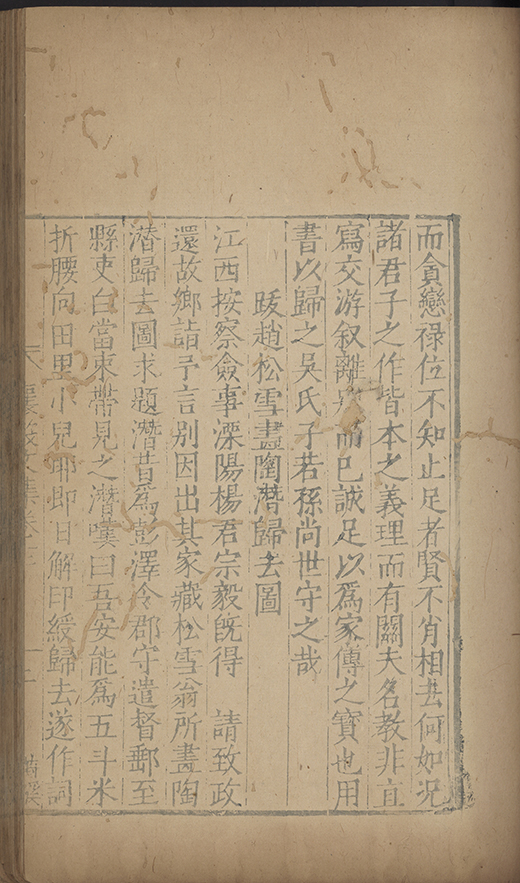 而貪戀祿位不知止足者賢不肖相去何如況
諸君子之作皆本之義理而有關夫名教非直
寫交游叙離別而已誠足以爲家傳之寶也用
書以歸之吳氏子若孫尚世守之哉
跋趙松雪畫陶潛歸去圖
江西按察僉事溧陽楊君宗毅旣得 請致政
還故鄉詣予言別因出其家藏松雪翁所畫陶
潛歸去圖求題潛昔爲彭澤令郡守遣督郵至
縣吏白當束帶見之潛嘆曰吾安能爲五斗米
折腰向田里小兒耶即日解印綬歸去遂作詞